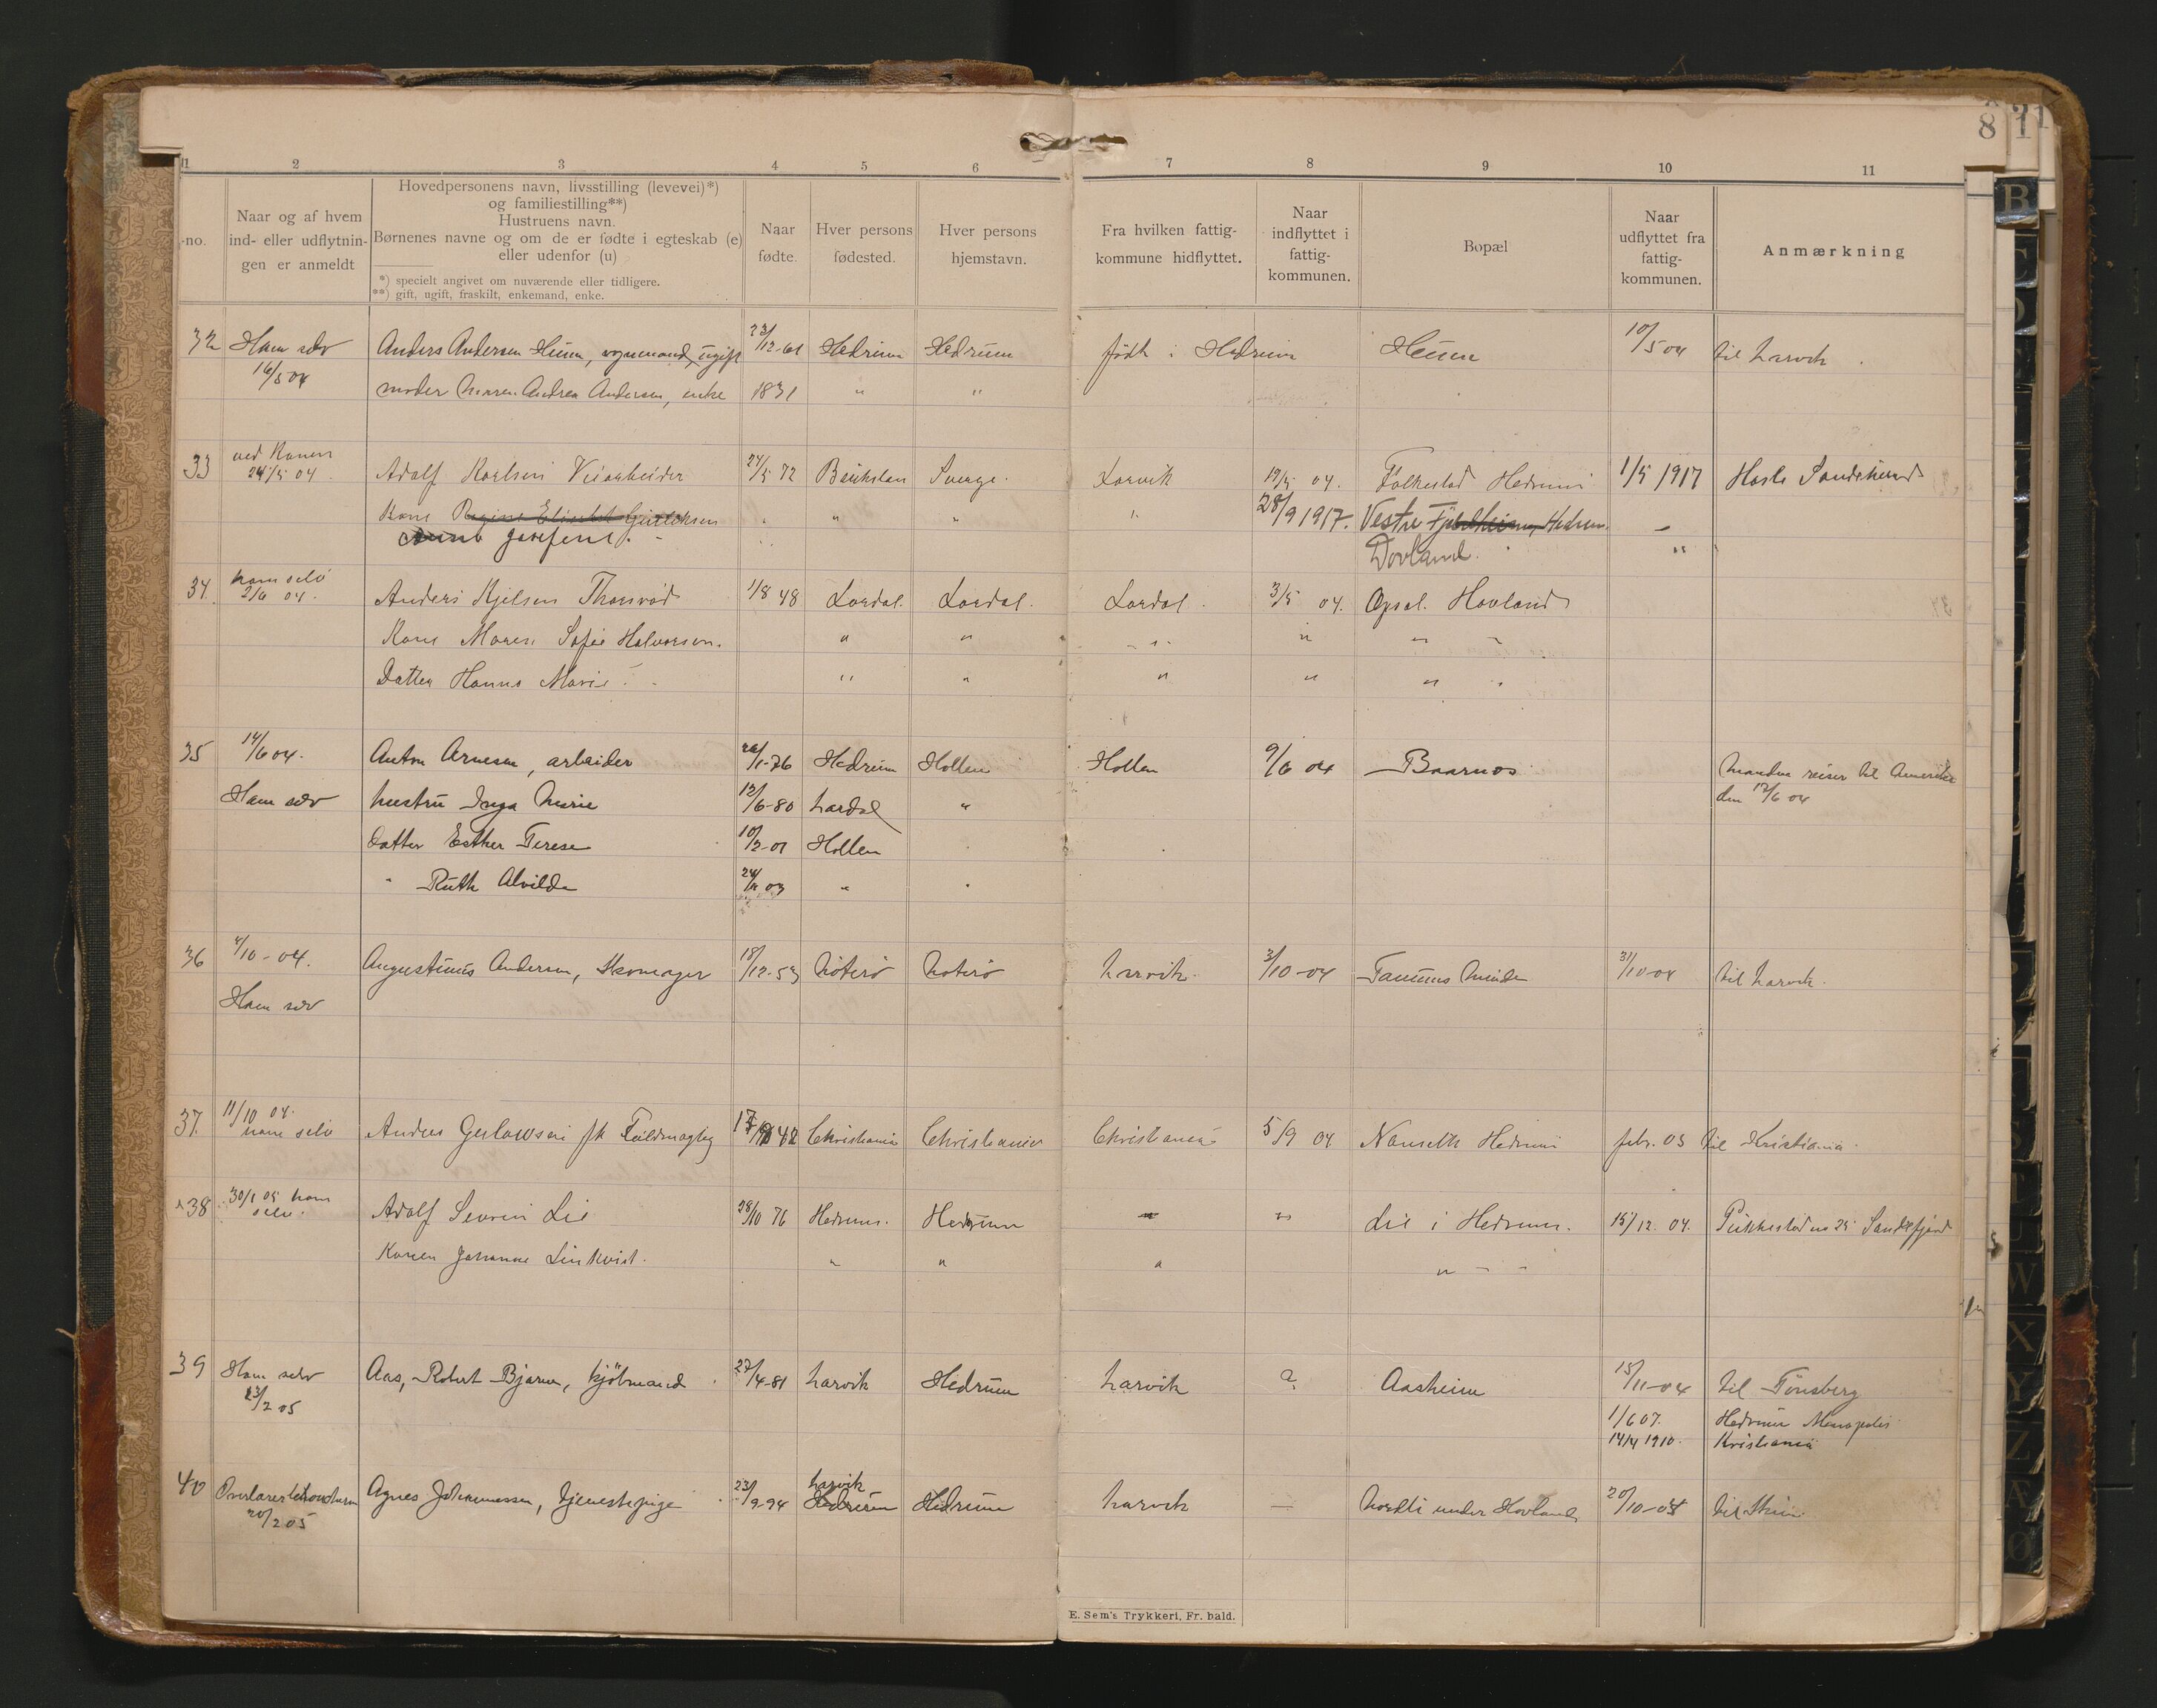 8 1
1 2 3 4 5 6 7 8 9 10 11
-no.
Naar og af hvem
ind- eller udflytnin-
gen er anmeldt
Hovedpersonens navn, livsstilling (levevei)*)
og familiestilling**)
Hustruens navn.
Børnenes navne og om de er fødte i egteskab (e)
eller udenfor (u)
*) specielt angivet om nuværende eller tidligere.
**) gift, ugift, fraskilt, enkemand, enke.
Naar
fødte.
Hver persons
fødested.
Hver persons
hjemstavn.
Fra hvilken fattig-
kommune hidflyttet.
Naar
indflyttet i
fattig-
kommunen.
Bopæl
Naar
udflyttet fra
fattig-
kommunen.
Anmærkning
32 Ham selv Anders Andersen Heum, vognmand, ugift 23/12-61 Hedrum Hedrum født i Hedrum Heum 10/5 04 til Larvik
16/5 04 moder Maren Andrea Andersen, enke 1831 " "
33 ved Konen Adolf Karlsen Veiarbeider 24/5 72 Sverge. Larvik 19/5 04. Falkestad Hedrum 1/5 1917 Hasle Sandeherred
24/5 04.
Kone Regine Elisabet " " " 28/9 1917. Vestre Hedrum. -
Josefine. Dovland. "
34. ham selv Anders Kjelsen Thorsrød 1/8 48 Lardal. Lardal. Lardal. 3/5 04. Opsal. Hovland
2/6 04.
Kone Maren Sofie Halvorsen. " " " " "
Datter Hanna Marie " " " " "
35 14/6 04. Anton Arnesen, arbeider 26/1-76 Hedrum Hollen Hollen 9/6 04 Baarnes Manden reiser til Amerika
den 12/6 04
Ham selv hustru Inga Marie 12/6-80 Lardal "
Datter Esther Terese 10/2-01 Hollen
" Ruth Alvilde 03 " "
36 4/10-04. Augustinus Andersen, Skomager 18/12-53 Nøterø Nøterø Larvik. 3/10-04 Fanums Minde 31/10-04 til Larvik.
Ham selv
37. 11/10 04. Christiania Christiania Christiania 5/9 04 Nanseth Hedrum febr. 05 til Kristiania.
ham selv
38 30/1 05 ham Adolf Severin Lie 28/10 76 Hedrum. Hedrum " " Lie i Hedrum. 15/12. 04. Pukkestad no 25 Sandefjord
selv.
Konen Johanne Linkvist. " " " " - -
39 Ham selv Aas, Robert Bjarne, kjøbmand 27/4-81 Larvik Hedrum Larvik ? Aasheim 15/11-04 til Tønsberg
23/2 05
1/6 07. Hedrum
14/4 1910. Kristiania
40 Agnes Johannessen, tjenestepige 23/9-94 Larvik
Hedrum Hedrum Larvik - under Hovland 20/10-04 til Skien
20/2 05
E. Sem's Trykkeri, Fr. hald.